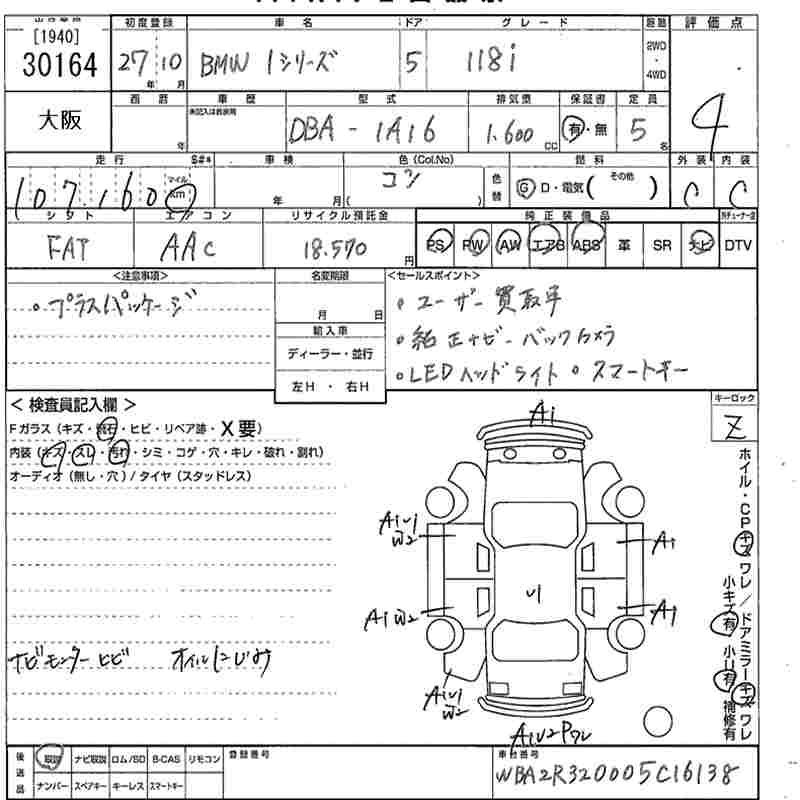 [1940]
30164
大阪
初度登録 車名 ドア グレード 駆動 評価点
27年 10月 BMW 1シリーズ 5 118i 2WD・4WD 4
西暦 車歴 型式 排気量 保証書 定員
年 未記入は自家用 DBA-1A16 1.600cc 有・無 5名
走行 S#* 車検 色(Col.No) 色替 燃料 外装 内装
107,160 マイル km 年 月 コン ( ) G D・電気( その他 ) C C
シフト エアコン リサイクル預託金 純正装備品
FAT AAC 18.570円 PS PW AW エアB ABS 革 SR ナビ DTV
<注意事項> 名変期限 <セールスポイント>
・プラスパッケージ
月 日
輸入車
ディーラー・並行
左H・右H
・ユーザー買取車
・純正ナビ-バックカメラ
・LEDヘッドライト・スマートキー
<検査員記入欄>
Fガラス(キズ・飛石・ヒビ・リペア跡・X要)
内装(キズ・スレ・汚れ・シミ・コゲ・穴・キレ・破れ・割れ)
オーディオ(無し・穴)/タイヤ(スタッドレス)
キーロック
Z
A1
A1U1
W2
A1
U1
A1W2
A1
A1U1
W2
A1U2Pワレ
ホイル・CPキズワレ/ドアミラーキズワレ
小キズ有・小U有・補修有
ナビモニターヒビ オイルにじみ
後送品 取説 ナビ取説 ロム/SD B-CAS リモコン
ナンバー スペアキー キーレス スマートキー
登録番号
車台番号
WBA2R320005C16138